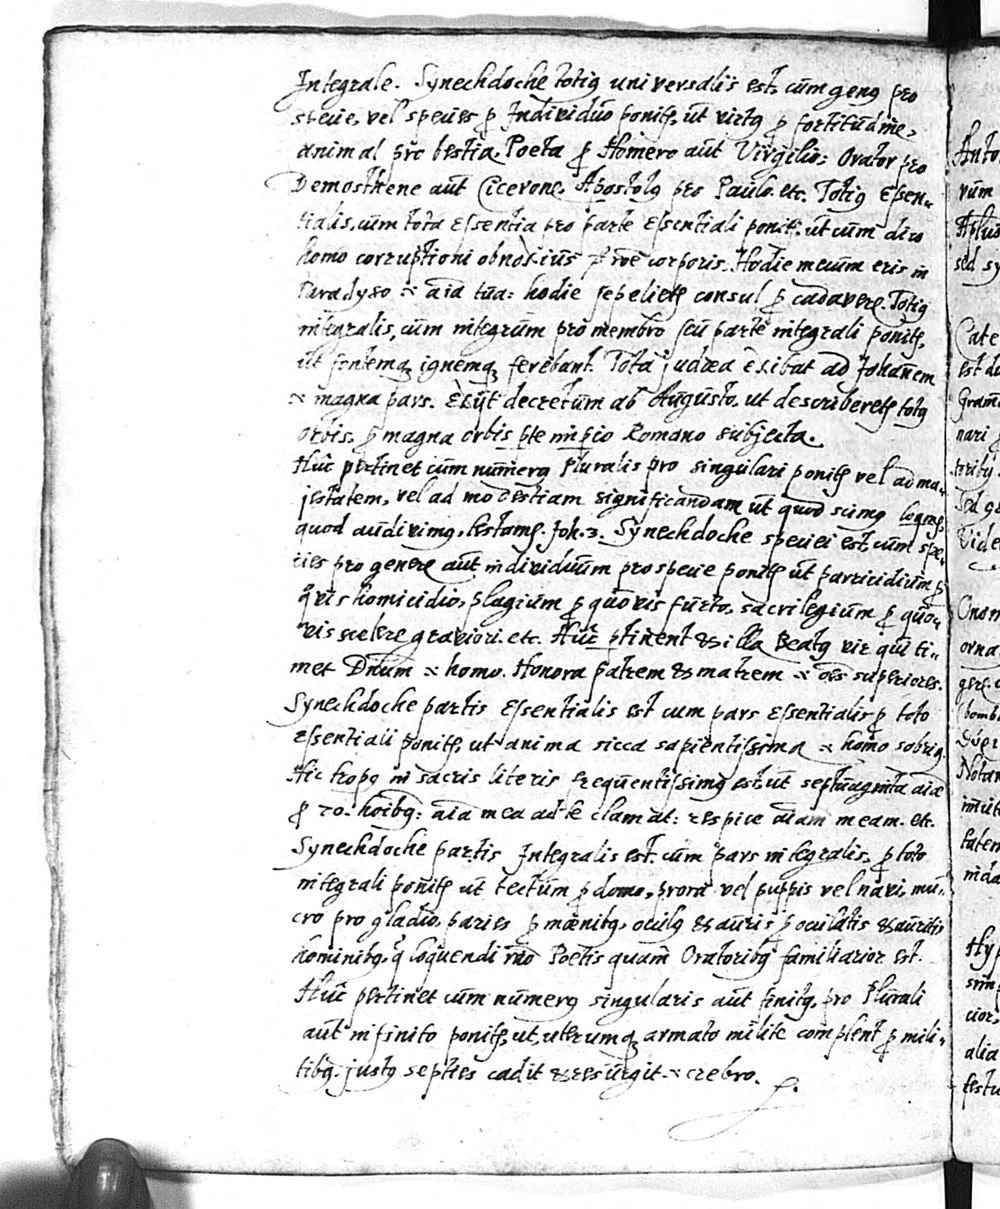 Integrale. Synechdoche totiꝰ universalis est, cùm genꝰ pro
specie, vel species ꝓ Individuo ponitꝰ, ut virtꝰ ꝓ fortitudine,
animal pro bestia. Poëta ꝓ Homero aut Virgilio: Orator pro
Demosthene aut Cicerone. Apostolꝰ pro Paulo. etc. Totiꝰ Essen-
tialis, cùm tota Essentia pro parte Essentiali ponitꝰ. ut cùm dico
homo corruptioni obnoxius rōe corporis. Hodie mecum eris in
Paradyso anīa tua: hodie sepelietꝰ consul ꝓ cadavere. Totiꝰ
integralis, cùm integrum pro membro seu parte integrali ponitꝰ,
ut fontemqꝫ ignemqꝫ ferebant. Tota Judæa exibat ad Johanem
magna pars. Exijt decretum ab Augusto. ut describeretꝰ totꝰ
orbis. ꝓ magna orbis ꝑte impio Romano subjecta.
Huc pertinet cùm numerꝰ pluralis pro singulari ponitꝰ vel ad ma-
jestatem, vel ad modestiam significandam ut quod scimꝰ loqimꝰ,
quod audivimꝰ, testamꝰ. Joh. 3. Synechdoche speciei est, cùm spe-
cies pro genere aut individuum pro specie ponitꝰ ut parricidium ꝓ
qvis homicidio, plagium ꝓ quovis furto, sacrilegium ꝓ quo-
vis scelere graviori. etc. Huc ꝑtinent & illa Beatꝰ vir qui ti-
met Dnum homo. Honora patrem & matrem oēs superiores.
Synechdoche partis Essentialis est cum pars Essentialis ꝓ toto
essentiali ponitꝰ, ut anima sicca sapientissima homo sobriꝰ
Hic tropꝰ in sacris literis frequentissimꝰ est, ut septuaginta aīæ
ꝓ 70. hoībꝰ: aīa mea ad te clamat: respice aīam meam. etc.
Synechdoche partis Integralis est. cùm pars integralis, ꝓ toto
integrali ponitꝰ ut tectum ꝓ domo, prora vel puppis vel navi, mu-
cro pro gladio, paries ꝓ mænibꝰ, oculꝰ & auris ꝓ oculatis & auritis
hominibꝰ, q̄ loquendi rāo Poëtis quam Oratoribꝰ familiarior est.
Huc pertinet cùm numerꝰ singularis aut finitꝰ, pro Plurali
aut infinito ponitꝰ, ut, uterumqꝫ armato milite complent ꝓ mili-
tibꝰ. justꝰ septies cadit & resurgit. crebro.